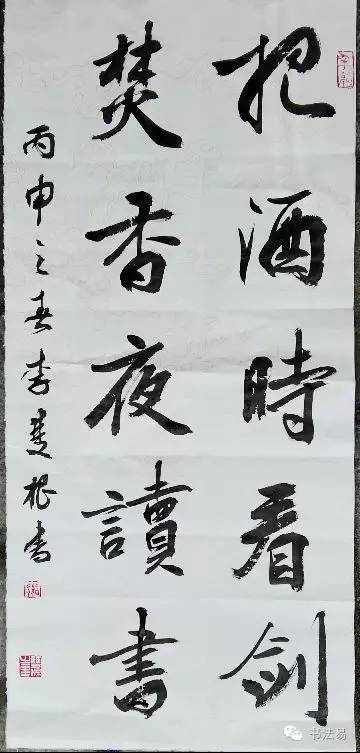 把酒時看劍
焚香夜讀書
丙申之春李雙根書
书法易